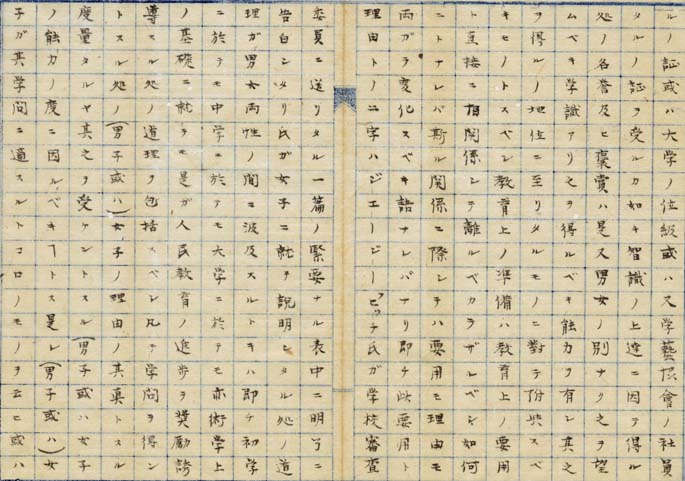 ルノ証或ハ大学ノ位級或ハ又学藝協會ノ社員
タルノ証ヲ受ルカ如キ智識ノ上達ニ因テ得ル
処ノ名誉及ヒ褒賞ハ是又男女ノ別ナク之ヲ望
ムベキ学識アリ之ヲ得ルベキ能力ヲ有シ其之
ヲ得ルノ地位ニ至リタルモノニ對テ附與スベ
キモノトスベシ教育上ノ準備ハ教育上ノ要用
ト直接ニ相関係シテ離ルベカラザルベシ如何
ニトナレバ斯ル関係ニ際シテハ要用モ理由モ
両ガラ変化スベキ語ナレバナリ即チ此要用ト
理由トノ二字ハジエージーピッチ氏ガ学校審査
委員ニ送リタル一篇ノ緊要ナル表中ニ明了ニ
告白シタリ氏ガ女子ニ就テ説明シタル処ノ道
理ガ男女両性ノ間ニ波及スルトキハ即チ初学
ニ於テモ中学ニ於テモ大学ニ於テモ亦術学上
ノ基礎ニ就テモ是ガ人民教育ノ進歩ヲ奨励誘
導スル処ノ道理ヲ包括スベシ凡テ学問ヲ得ン
トスル処ノ(男子或ハ)女子ノ理由ノ其真トスル
度量タルヤ其之ヲ受ケントスル(男子或ハ女子
ノ能力ノ度ニ因ルベキヿトス是レ(男子或ハ)女
子ガ其学問ニ適スルトコロノモノヲ云ヒ或ハ